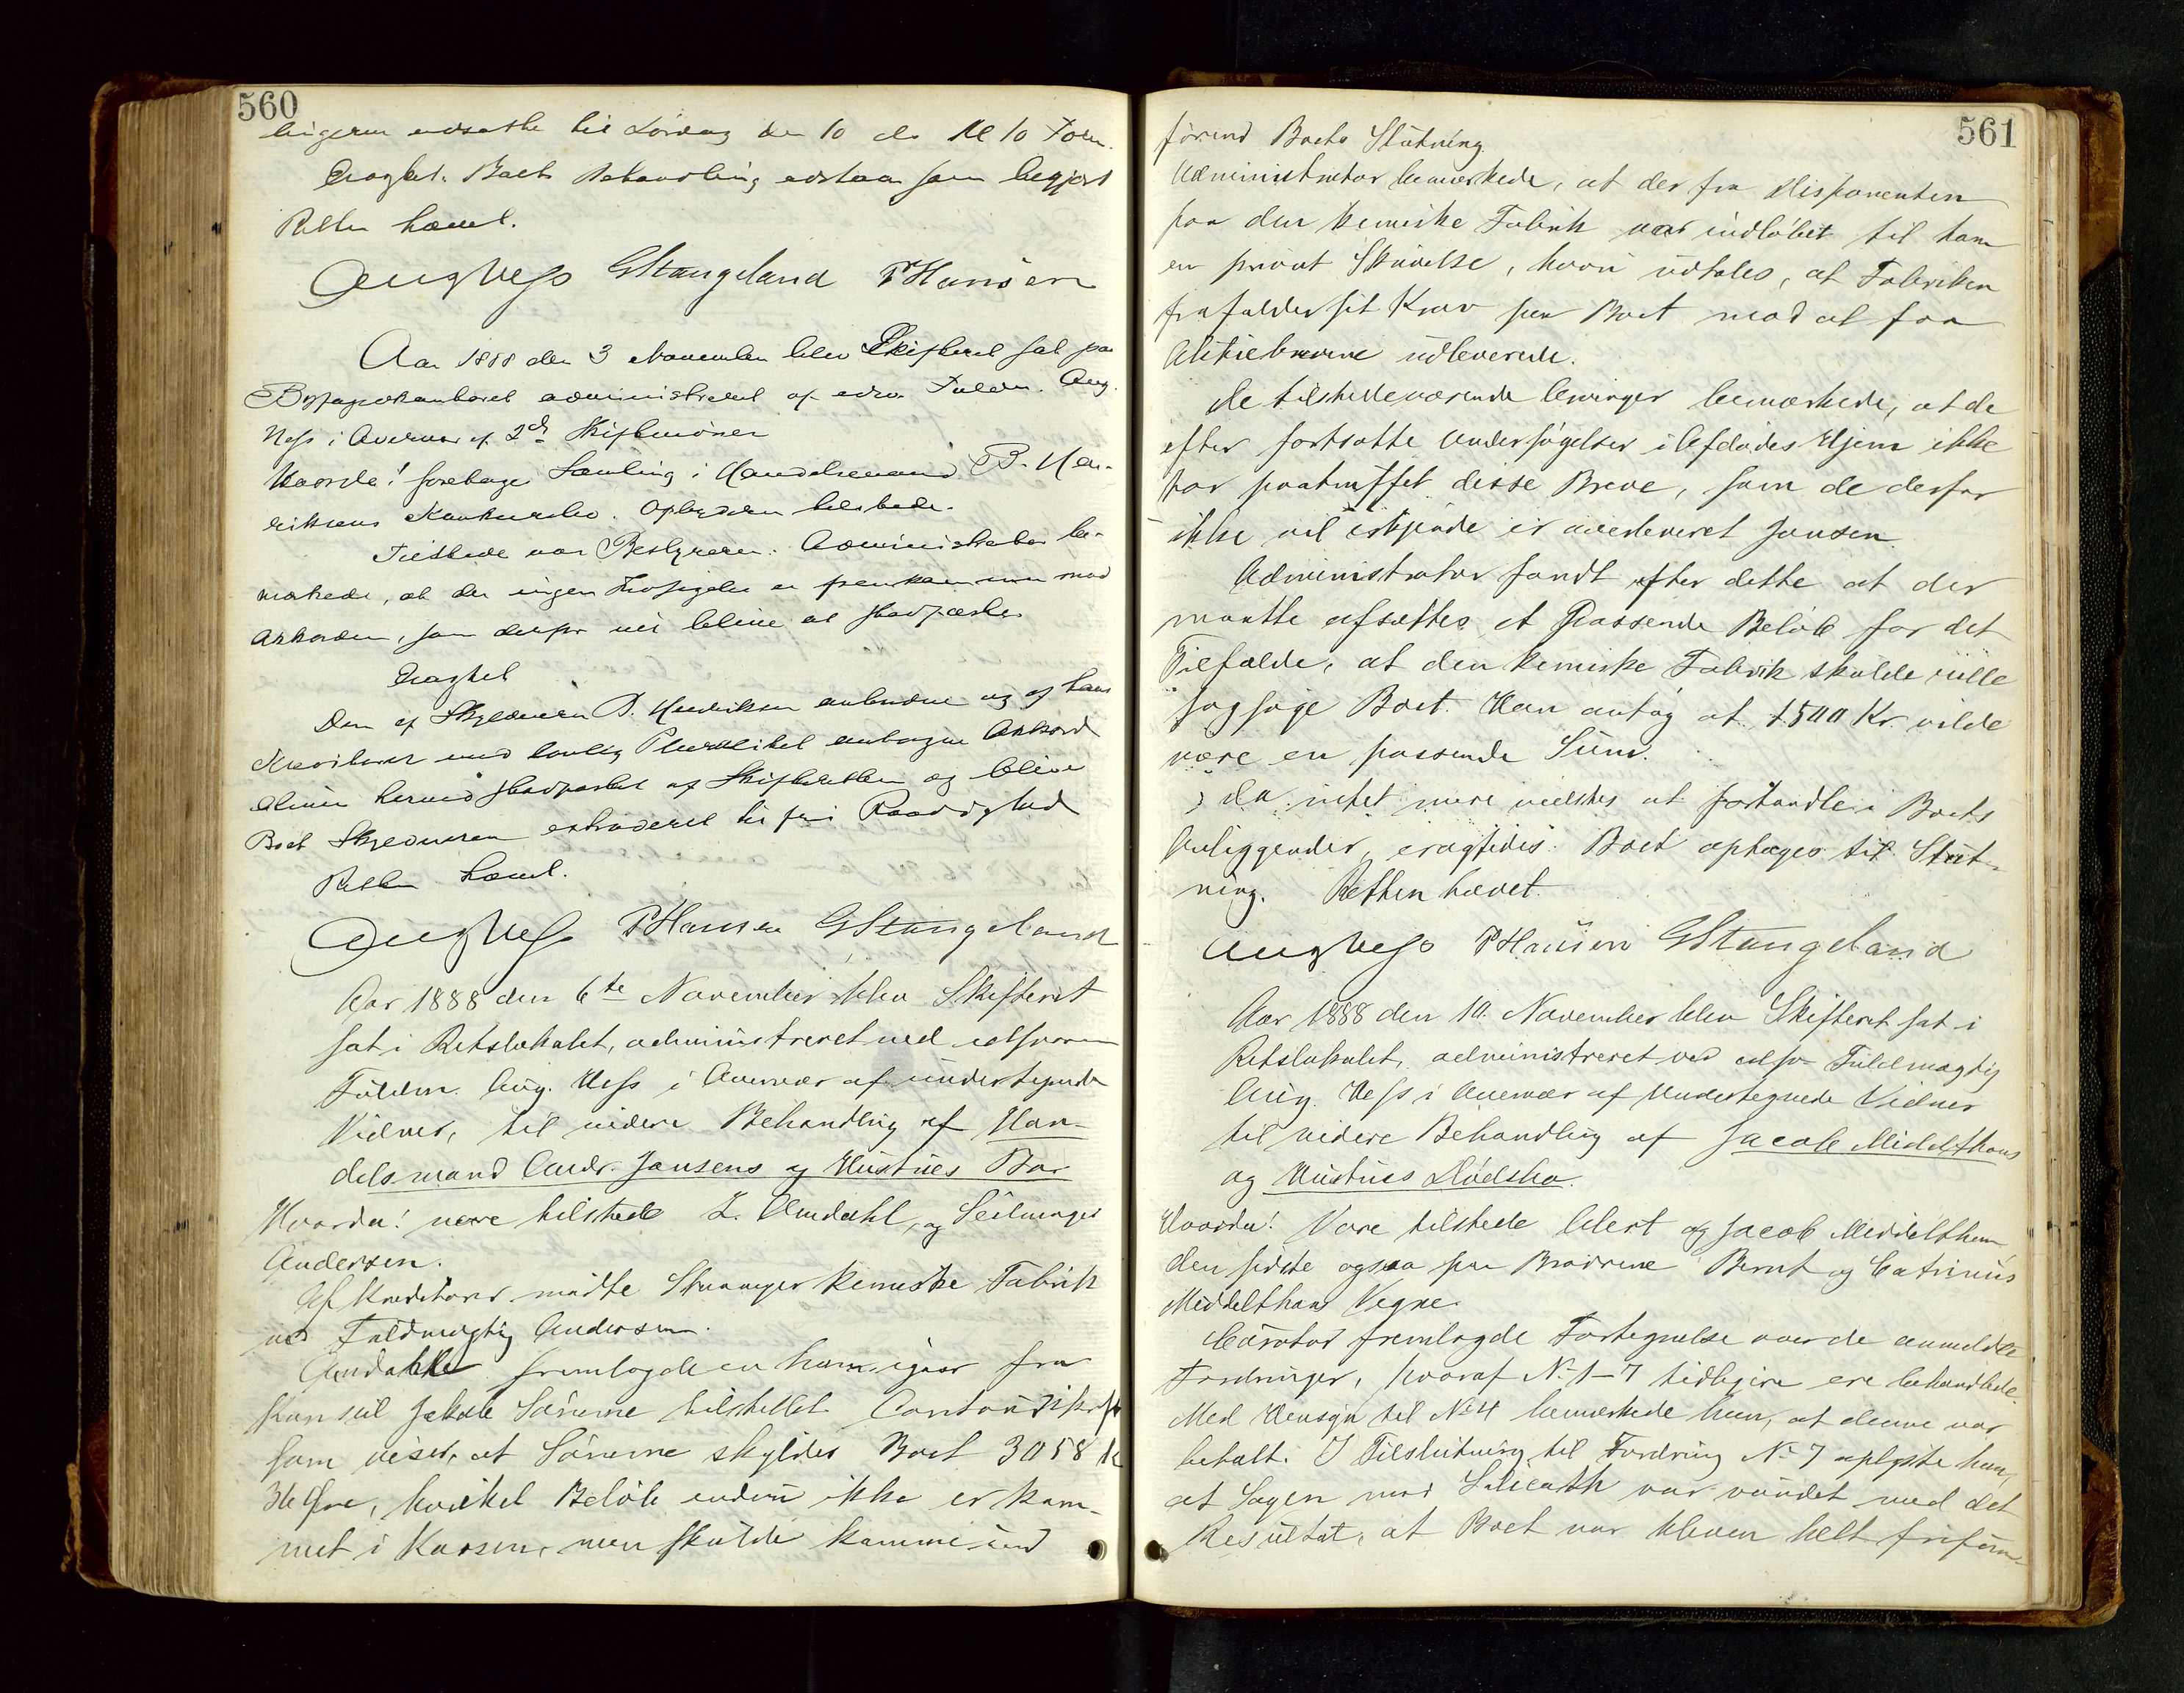 560
lingerne udsatte til Lørdag den 10 ds Kl 10 Form.
Eragtet: Boets Behandling udstaar som begjært
Retten hævet.
Aug Ness GStangeland PHansen
Aar 1888 den 3 November blev Skifteret sat paa
Byfogedkontoret administreret af edsv. Fuldm. Aug.
Ness i Overvær af 2de Skiftevidner
Hvorda! foretoges Samling i Handelsmand B. Hen-
riksens Konkursbo. Opbyderen tilstede.
Tilstede var Bestyreren. Administrator be-
mærkede, at der ingen Indsigelse er fremkommen mod
Akkorden, som derfor vil blive at stadfæste
Eragtet
Den af Skyldneren B. Henriksen anbudne og af hans
Kreditorer med lovlig Pluralitet antagne Akkord
bliver herved stadfæstet af Skifteretten og bliver
Boet Skyldneren extraderet til fri Raadighed
Retten hævet.
Aug Ness PHansen GStangeland
Aar 1888 den 6te November blev Skifteret
sat i Retslokalet, administreret ved edsvoren
Fuldm. Aug. Ness i Overvær af undertegnede
Vidner, til videre Behandling af Han-
delsmand Andr. Jansens og Hustrues Bo
Hvorda! vare tilstede L. Omdahl, og Seilmager
Andersen.
Af Kreditorer mødte Stavanger kemiske Fabrik
ved Fuldmægtig Andersen.
Omdahl fremlagde en ham igaar fra
Konsul Jakob Sømme tilstillet Contoudskrift
som viser, at Sømme skylder Boet 3058 Kr
36 Øre, hvilket Beløb endnu ikke er kom-
met i Kassen, men skulde komme ind
561
førend Boets Slutning.
Administrator bemærkede, at der fra Disponenten
paa den kemiske Fabrik var indløbet til ham
en privat Skrivelse, hvori udtales, at Fabriken
frafalder sit Krav paa Boet mod at faa
Aktiebrevene udleverede.
De tilstedeværende Arvinger bemærkede, at de
efter fortsatte Undersøgelser i Afdødes Hjem ikke
har paatruffet disse Breve, som de derfor
ikke vil er overleveret Jansen.
Administrator fandt efter dette at der
maatte afsættes et Passende Beløb for det
Tilfælde, at den kemiske Fabrik skulde ville
sagsøge Boet. Han antog at 1500 Kr. vilde
være en passende Sum.
Da intet mere vidstes at forhandle i Boets
Anliggender, eragtedes: Boet optages til Slut-
ning. Retten hævet.
Aug Ness PHansen GStangeland
Aar 1888 den 10. November blev Skifteret sat i
Retslokalet, administreret ved edsv Fuldmægtig
Aug. Ness i Overvær af Undertegnede Vidner
til videre Behandling af Jacob Middelthons
og Hustrues Dødsbo.
Hvorda! Vare tilstede Elert og Jacob Middelthon
den sidste ogsaa paa Brødrene Bernt og Catrinus
Middelthons Vegne.
Curator fremlagde Fortegnelse over de anmeldte
Fordringer, hvoraf No 1–7 tidligere ere behandlede.
Med Hensyn til No 4 bemærkede han, at denne var
betalt. I Tilslutning til Fordring No 7 oplyste han,
at Sagen mod var vundet med det
Resultat, at Boet var bleven helt frifun-